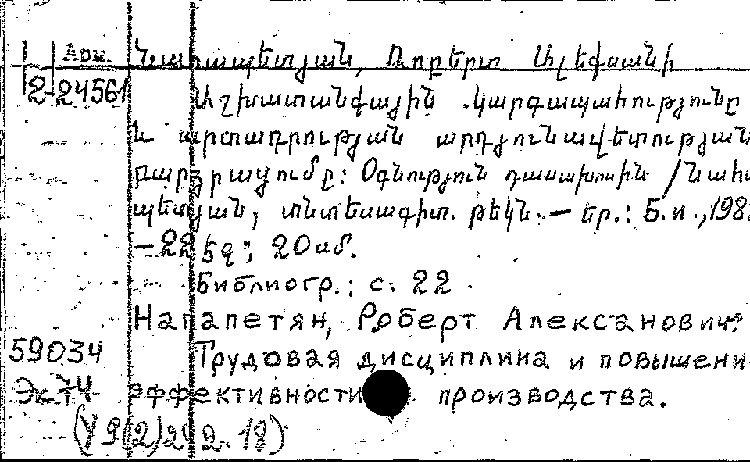 Арм. Նահապետյան, Ռոբերտ Ալեքսանի
2-24561 Աշխատանքային կարգապահությունը
և արտադրության արդյունավետության
բարձրացումը: Օգնություն դասախոսին / Նահա
պետյան, տնտեսագիտ. թեկն. — Եր.: Б.и., 198
— 22 էջ; 20 սմ.
Библиогр.: с. 22
Наhапетян, Роберт Александрович.
59034 Трудовая дисциплина и повышени
Эк 74 эффективности производства.
(У9(2)242.18)